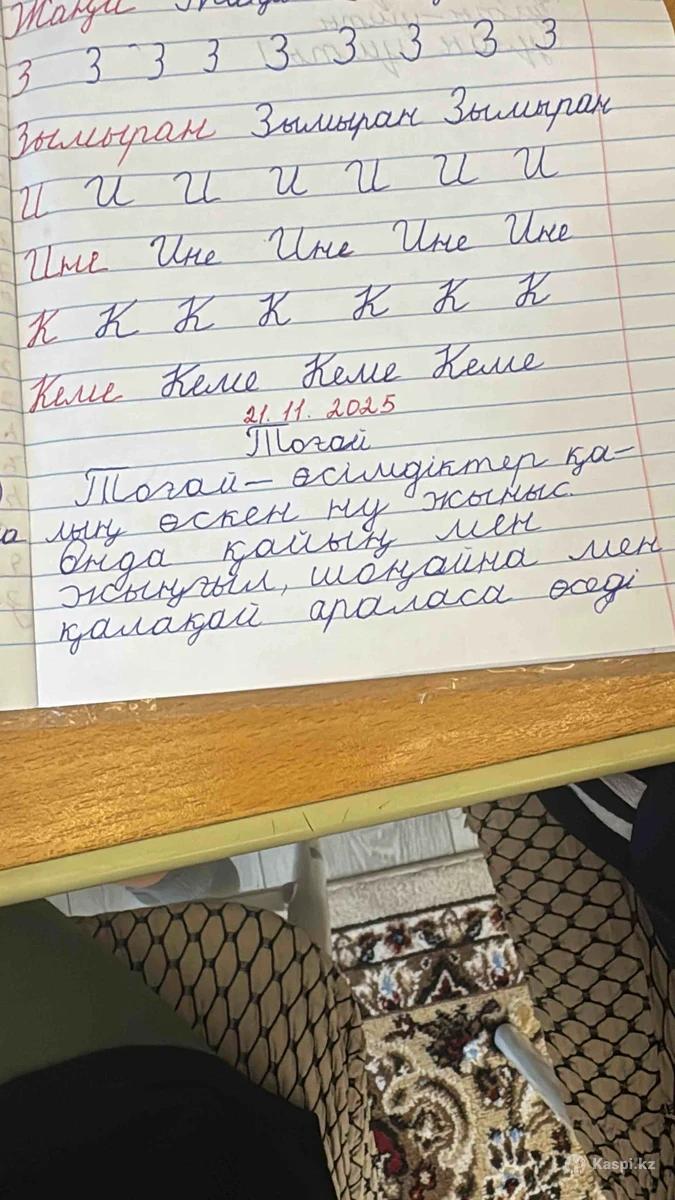 Жаңғ
З З З З З З З З З
Зымыран Зымыран Зымыран
И И И И И И И
Ине Ине Ине Ине Ине
К К К К К К К
Кеме Кеме Кеме Кеме
21. 11. 2025
Тоғай
Тоғай – өсімдіктер қа-
лың өскен ну жыныс.
Онда қайың мен
жыңғыл, шоңайна мен
қалақай араласа өседі
Kaspi.kz